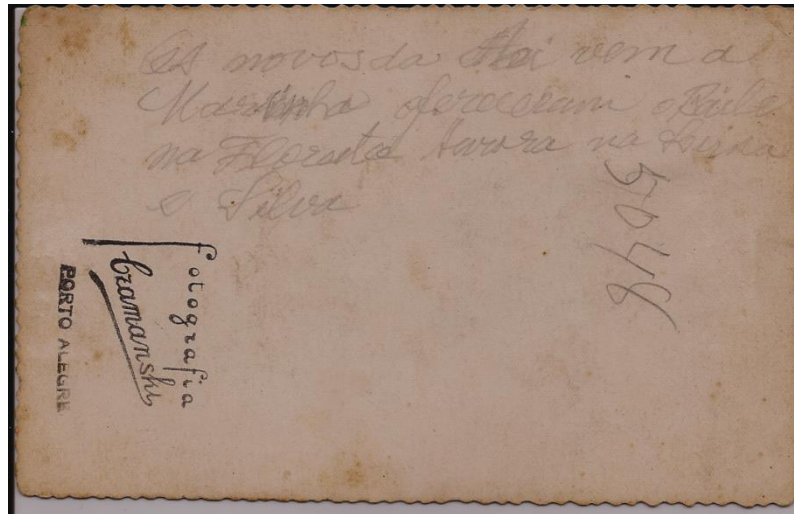 Os novos da Aai vem a
Marinha ofereceram o Baile
na Floresta Aurora na Lima
e Silva
5048
fotografia
Cramanski
PORTO ALEGRE